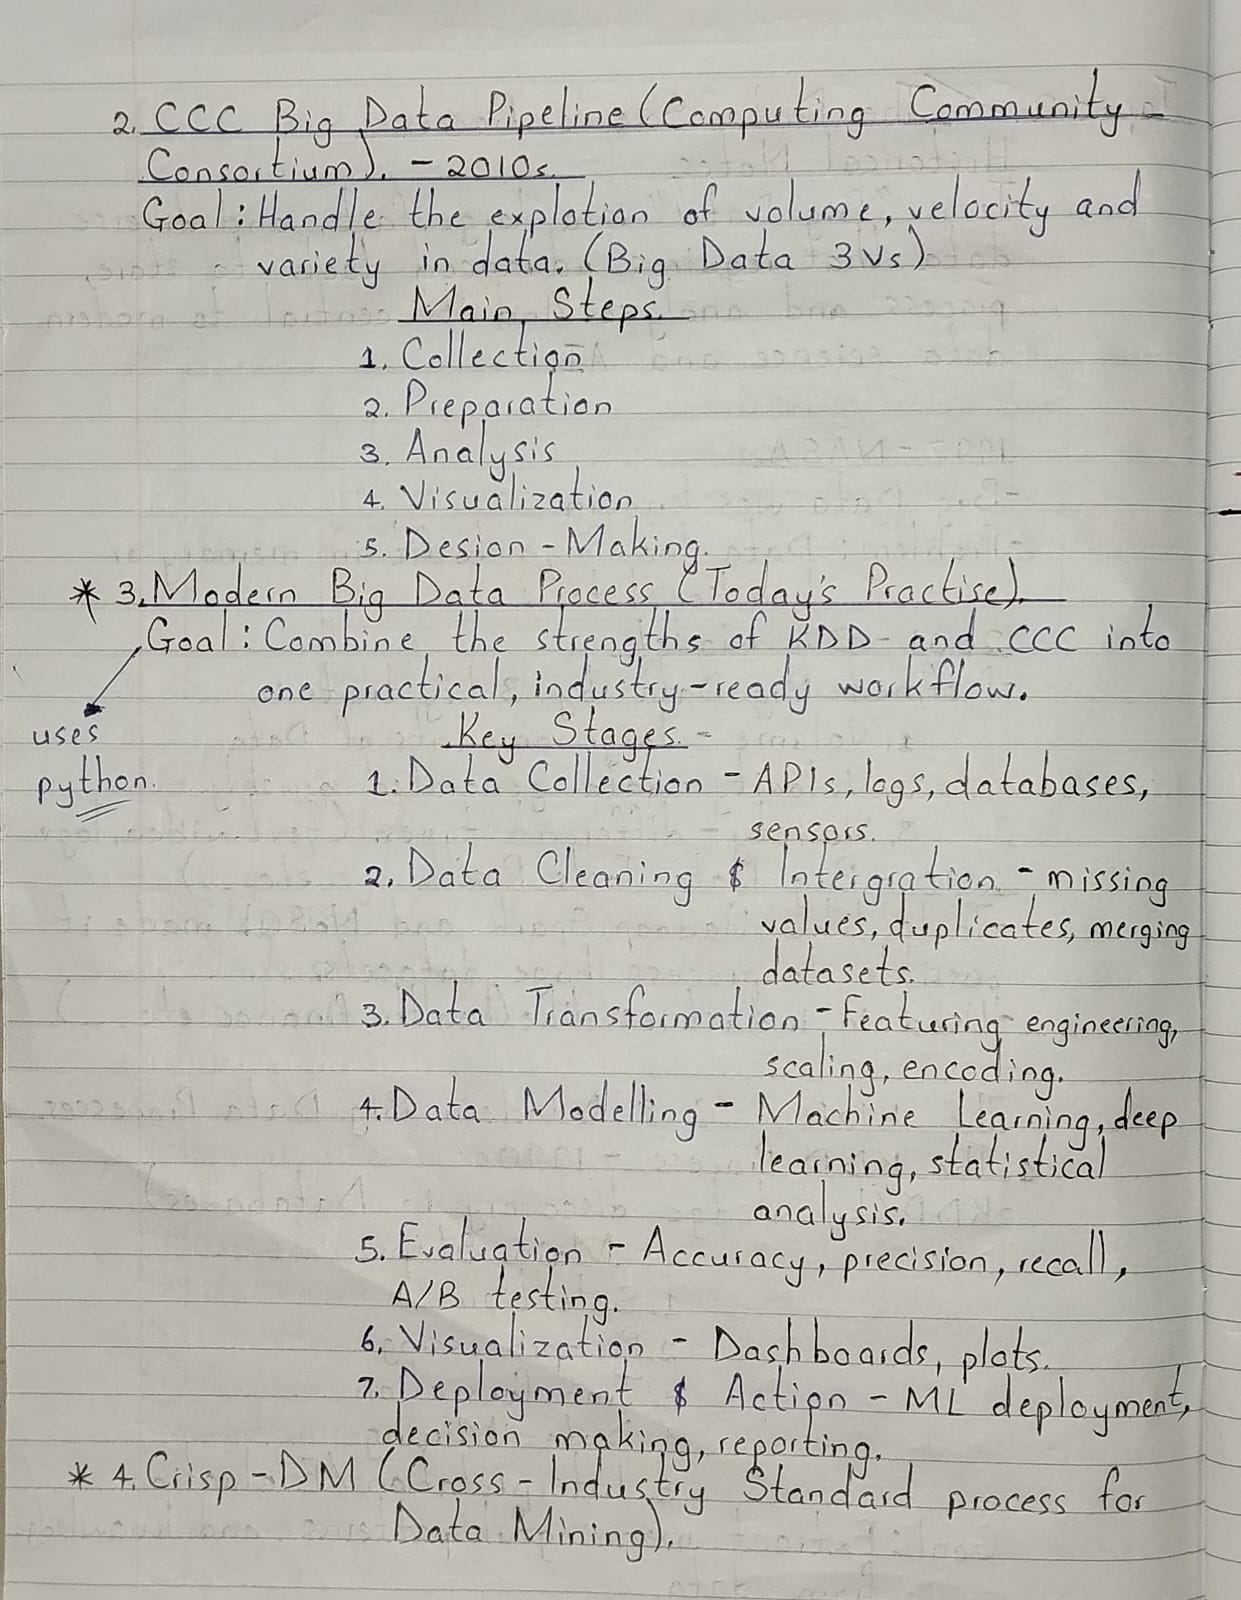 2. CCC Big Data Pipeline (Computing Community -
Consortium). - 2010s.
Goal: Handle the explotion of volume, velocity and
variety in data. (Big Data 3Vs)
Main Steps.
1. Collection
2. Preparation
3. Analysis
4. Visualization
5. Desion - Making.
* 3. Modern Big Data Process (Today's Practise).
Goal: Combine the strengths of KDD and CCC into
one practical, industry-ready workflow.
uses
python.
Key Stages. -
1. Data Collection - APIs, logs, databases,
sensors.
2. Data Cleaning & Intergration - missing
values, duplicates, merging
datasets.
3. Data Transformation - Featuring engineering,
scaling, encoding.
4. Data Modelling - Machine Learning, deep
learning, statistical
analysis.
5. Evaluation - Accuracy, precision, recall,
A/B testing.
6. Visualization - Dashboards, plots.
7. Deployment & Action - ML deployment,
decision making, reporting.
* 4. Crisp-DM (Cross-Industry Standard process for
Data Mining).